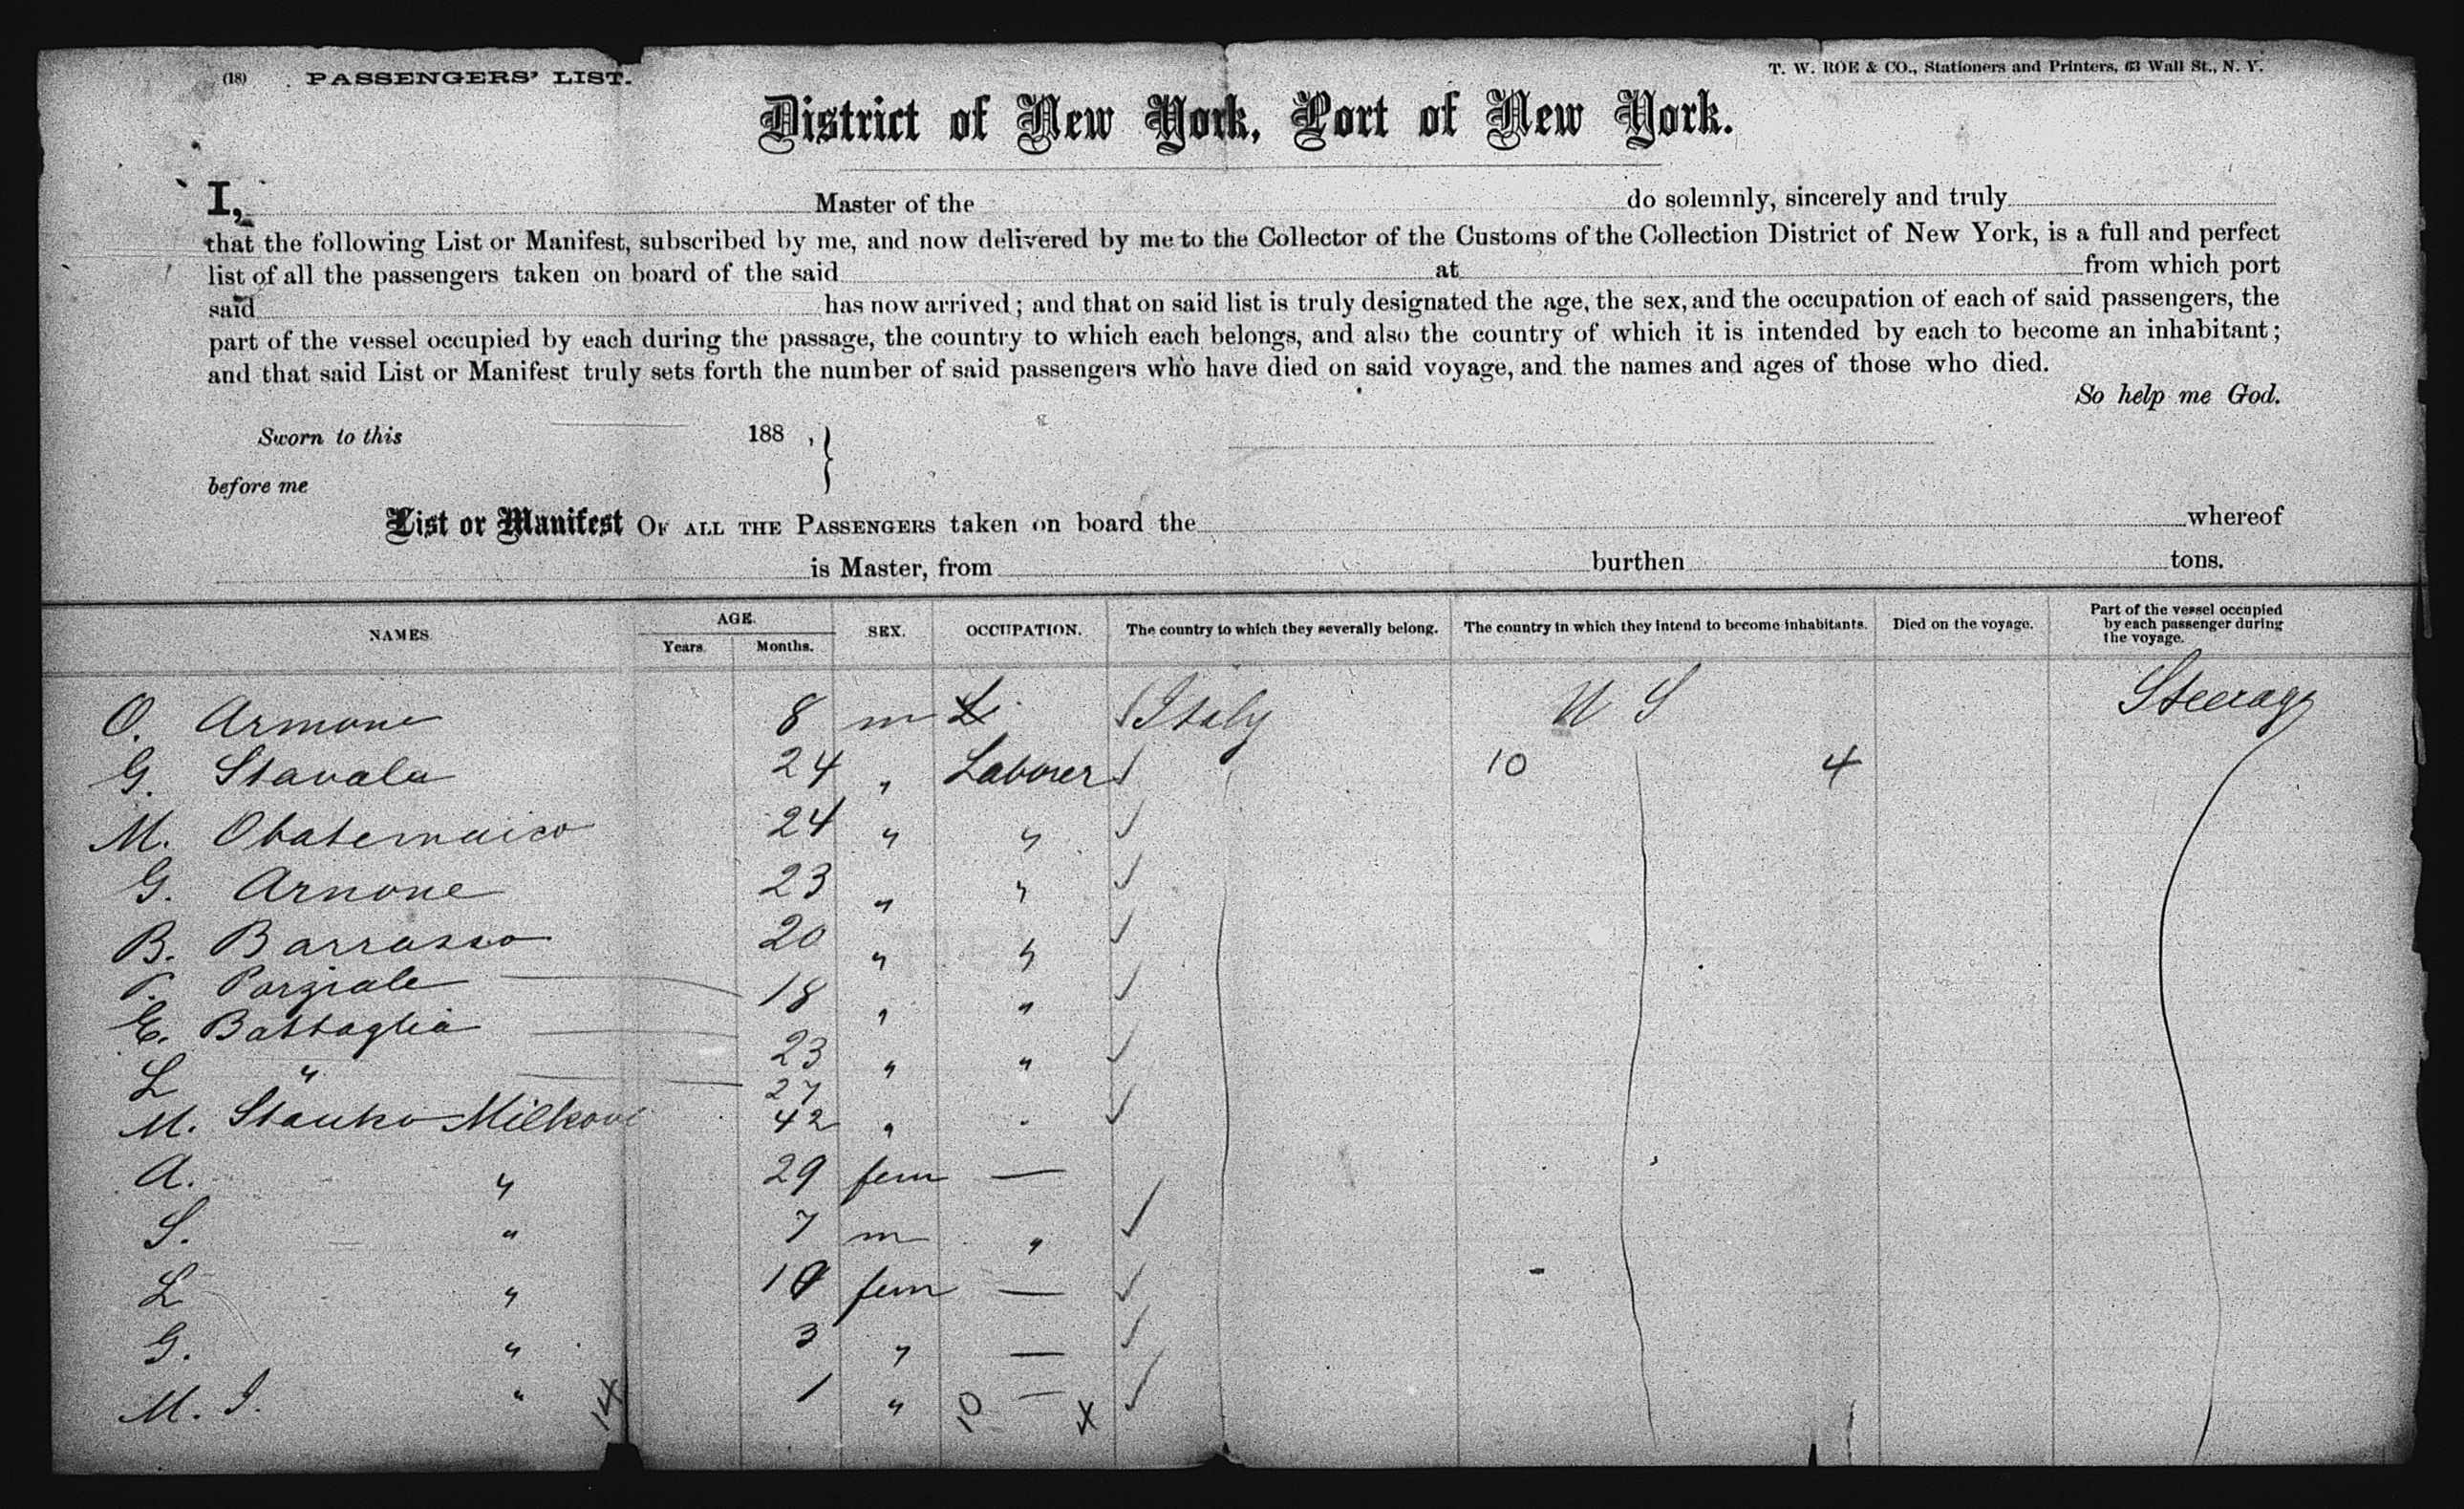 (18) PASSENGERS' LIST.
T. W. ROE & CO., Stationers and Printers, 63 Wall St., N. Y.
District of New York, Port of New York.
I, Master of the do solemnly, sincerely and truly
that the following List or Manifest, subscribed by me, and now delivered by me to the Collector of the Customs of the Collection District of New York, is a full and perfect
list of all the passengers taken on board of the said at from which port
said has now arrived; and that on said list is truly designated the age, the sex, and the occupation of each of said passengers, the
part of the vessel occupied by each during the passage, the country to which each belongs, and also the country of which it is intended by each to become an inhabitant;
and that said List or Manifest truly sets forth the number of said passengers who have died on said voyage, and the names and ages of those who died.
So help me God.
Sworn to this 188 , }
before me
List or Manifest OF ALL THE PASSENGERS taken on board the whereof
is Master, from burthen tons.
NAMES. AGE. Years. Months. SEX. OCCUPATION. The country to which they severally belong. The country in which they intend to become inhabitants. Died on the voyage. Part of the vessel occupied by each passenger during the voyage.
O. Armone 8 m L ✓ Italy U S Steerage
G. Stavala 24 " Laborer ✓ 10 4
M. 24 " " ✓
G. Arnone 23 " " ✓
B. Barrasso 20 " " ✓
P. Porziale 18 " " ✓
E. Battaglia 23 " " ✓
L " 27
M. Stauko Milkovi 42 " " ✓
A. " 29 fem —
S. " 7 m " ✓
L " 10 fem — ✓
G. " 3 " — ✓
M. I. " 1 " — ✓
14 10 4